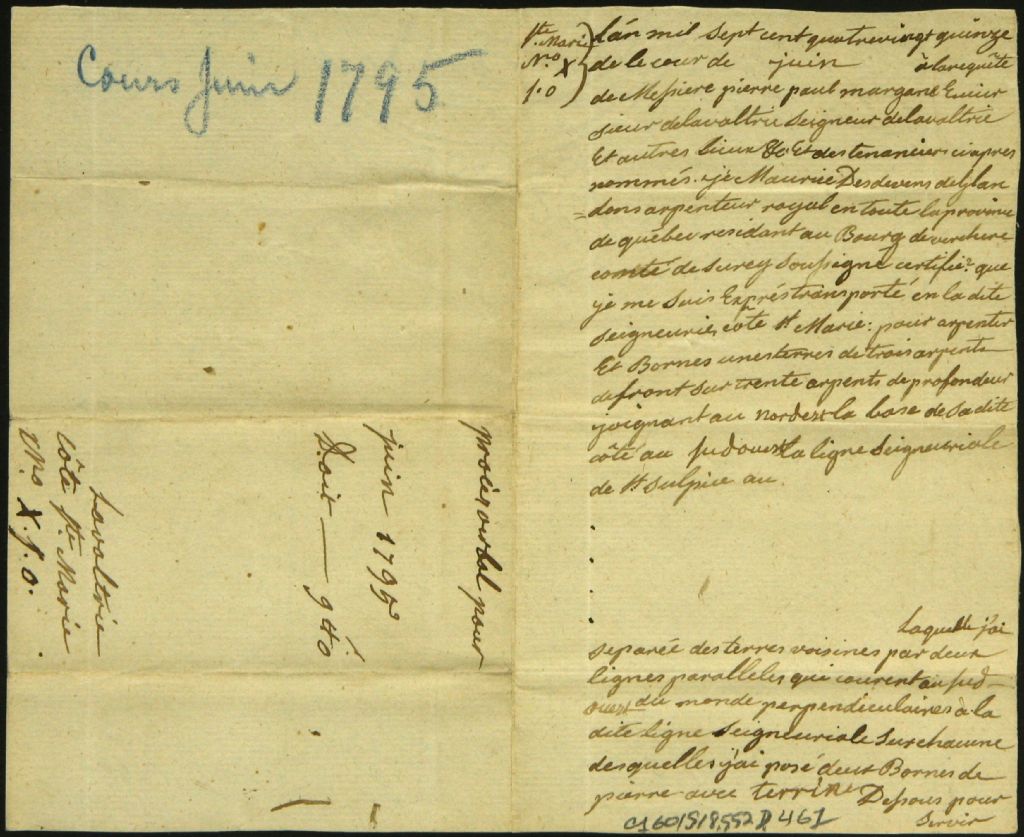 Cours Juin 1795
procès verbal pour
juin 1795
Doit — 9 ₶ 0
Lavaltrie
Côte Ste. Marie
No. X. f. o.
Ste. Marie
No. X
f. o
L'an mil sept cent quatrevingt quinze
de le cour de juin à la requête
de Messiere pierre paul margane Ecuier
sieur delavaltrie Seigneur delavaltrie
Et autres lieux &c Et des tenanciers ci apres
nommés. je Maurice Desdevens de Glan
=dons arpenteur royal en toute la province
de québec residant au Bourg de verchere
comté de surey soussigné certifie. que
je me suis Exprés transporté en la dite
seigneurie, côte St Marie: pour arpenter
Et Bornes une terres de trois arpents
de front sur trente arpents de profondeur
joignant au nordest la base de sa dite
côté au sudouest la ligne Seigneuriale
de St Sulpice au.
Laquelle j'ai
separée des terres voisines par deux
lignes paralleles qui courent au sud-
ouest du monde perpendiculaires à la
dite ligne Seigneuriale sur chacune
desquelles j'ai posé deux Bornes de
pierre avec terrine Dessous pour
servir